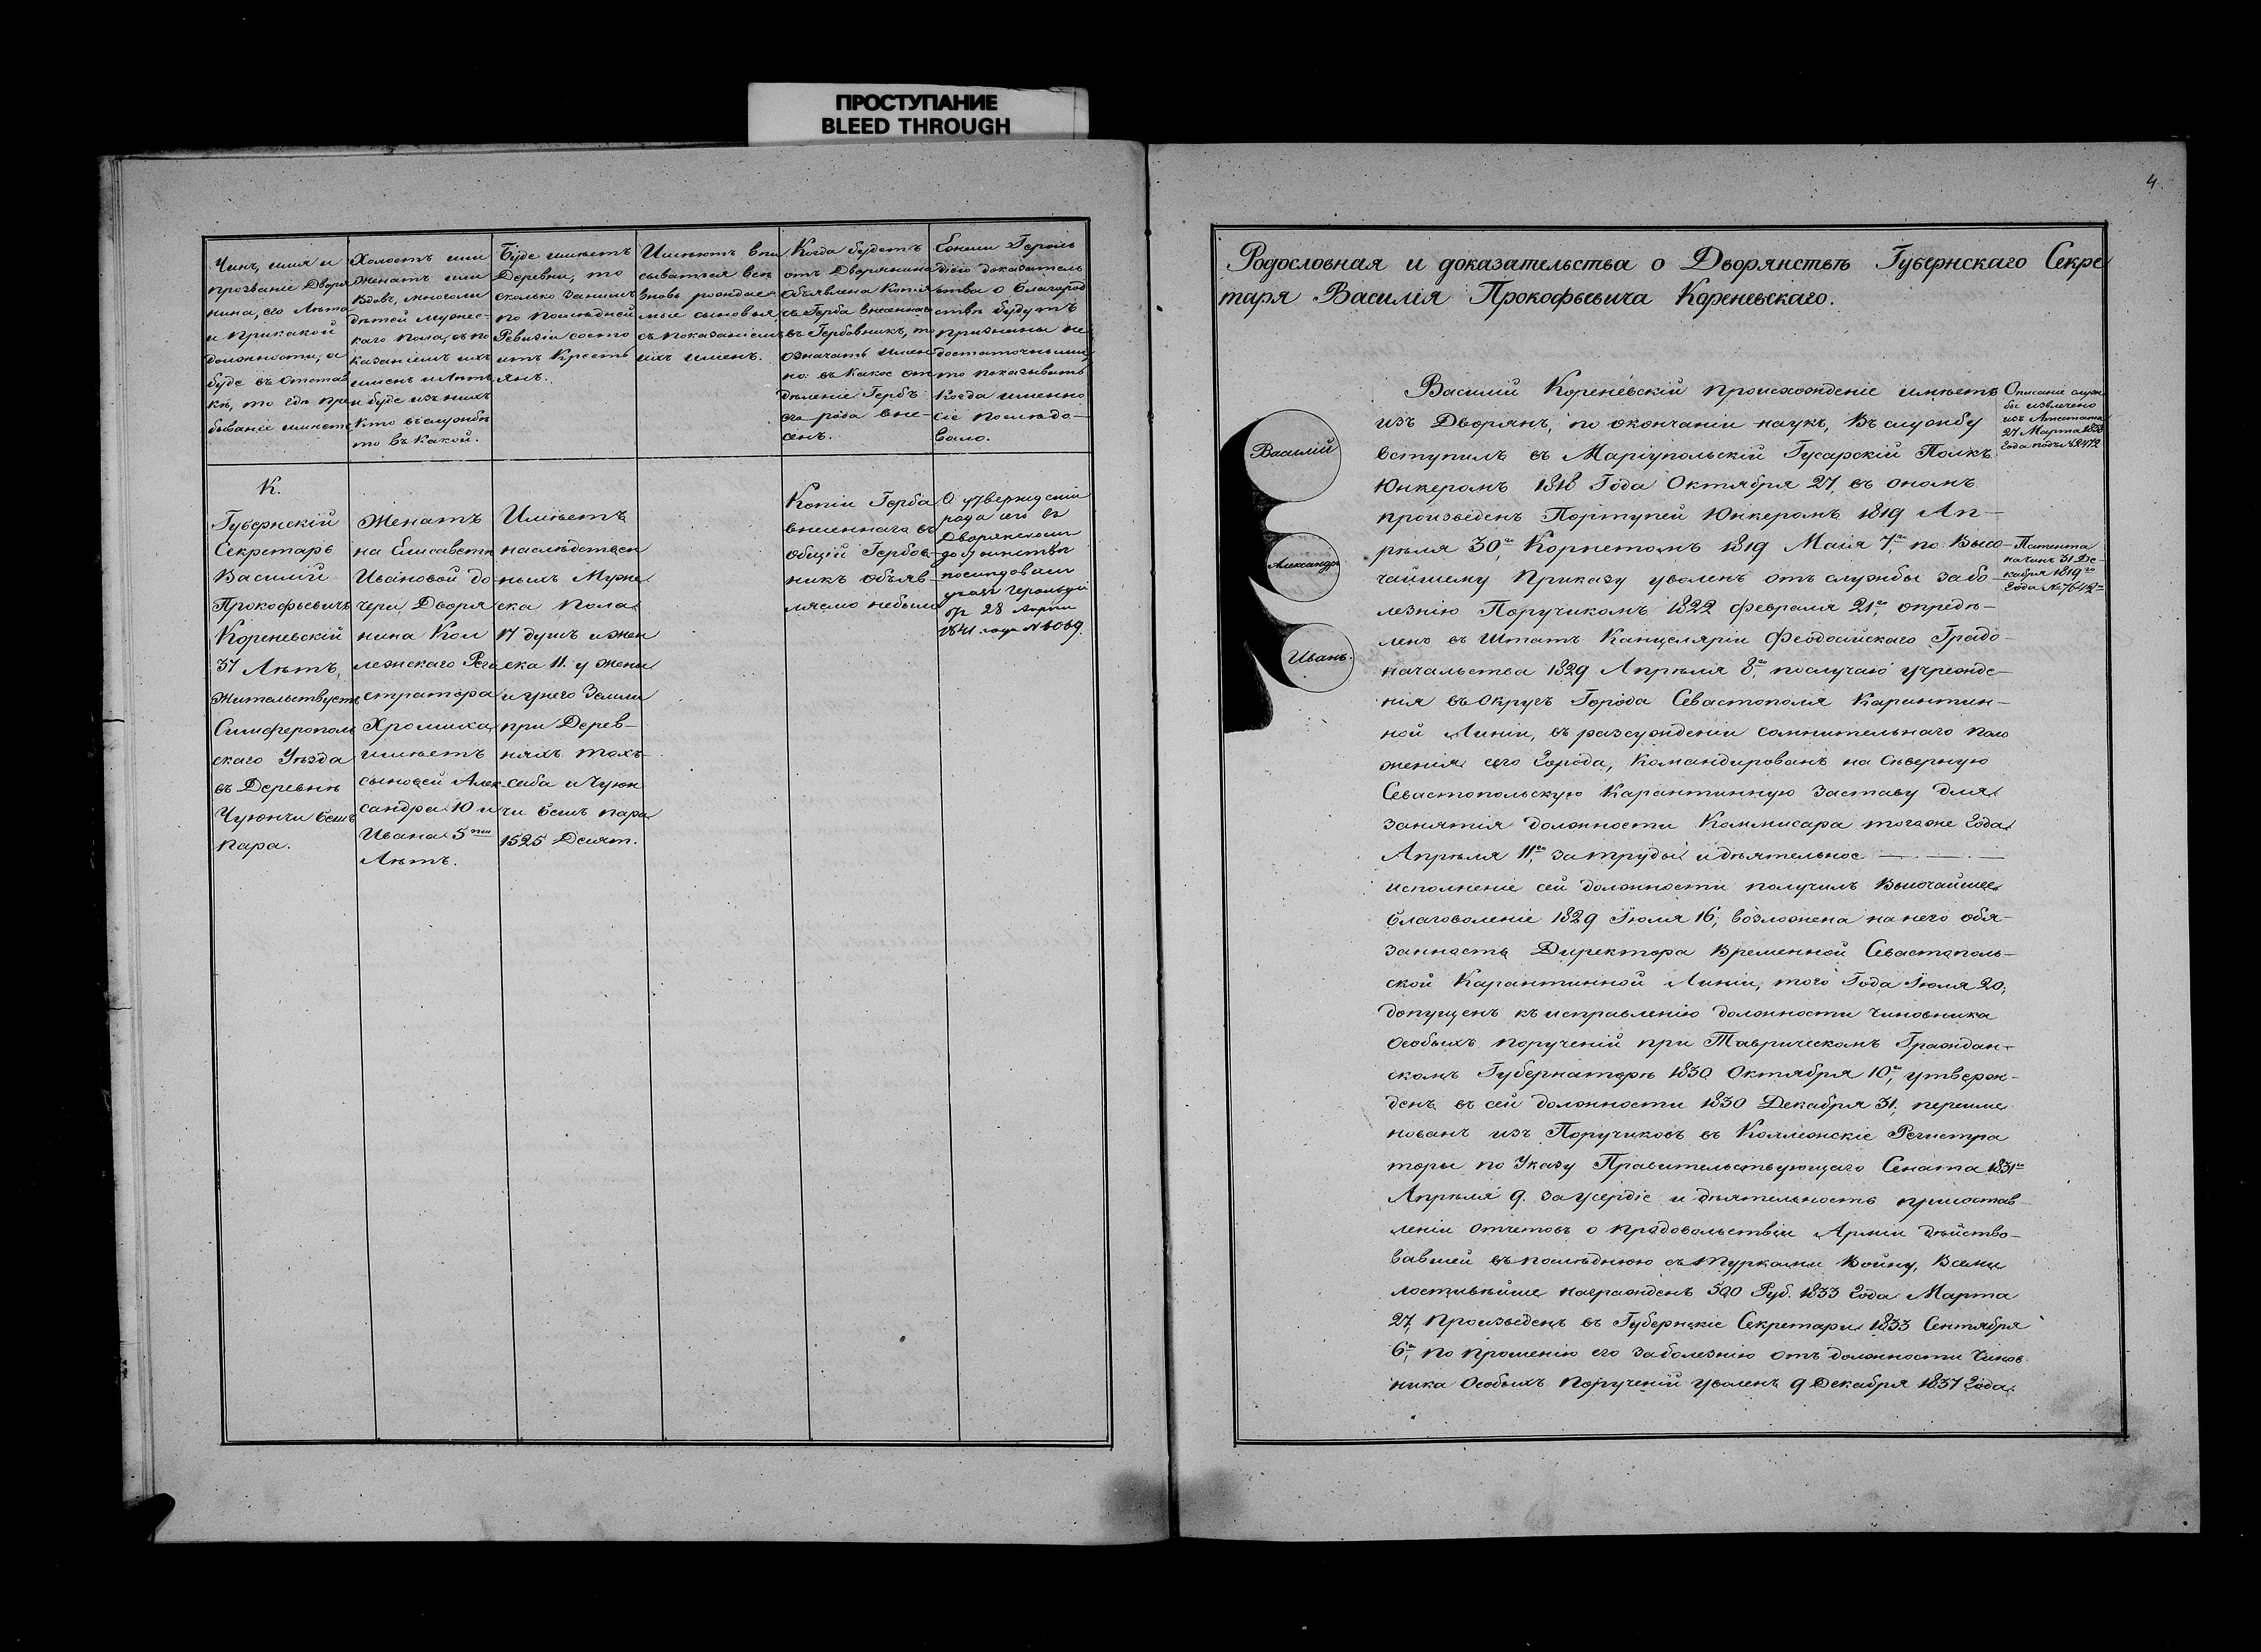 ПРОСТУПАНИЕ
BLEED THROUGH
Чинъ, имя и
прозваніе Дворя
нина, его Лѣта
и Прикакой
должности, а
буде въ отстав
кѣ, то гдѣ пре
бываніе имѣетъ
Холостъ или
женатъ или
вдовъ, многоли
дѣтей мужес-
каго пола, съ по
казаніемъ ихъ
именъ и Лѣтъ,
и буде изъ нихъ
Кто въ службѣ
то въ Какой.
Буде имѣетъ
Деревни, то
сколько за нимъ
по послѣдней
Ревизіи состо
итъ Кресть
янъ.
Имѣютъ впи
сываться всѣ
вновь рождае
мые сыновья,
съ показаніемъ
ихъ именъ.
Когда будетъ
отъ Дворянина
объявлена Копія
съ Герба внесеннаго
въ Гербовникъ, то
означать имен
но: въ Какое от
дѣленіе Гербъ
его рода вне-
сенъ.
Ежели Героль
діею доказатель
ства о благород
ствѣ будутъ
признаны не
достаточными,
то показывать
Когда именно
сіе послѣдо-
вало.
К.
Губернскій
Секретарь
Василій
Прокофьевичъ
Кореневскій
37 Лѣтъ,
жительствуетъ
Симферополь
скаго Уѣзда
въ Деревнѣ
Чуюнчи беш
пара.
Женатъ
на Елисаветѣ
Ивановой до-
чери Дворя
нина Кол
лежскаго Реги
стратора
Хромика,
имѣетъ
сыновей Алек-
сандра 10 и
Ивана 5ти
Лѣтъ.
Имѣетъ
наслѣдствен
ныхъ Муже
ска пола
17 душъ и жен
ска 11. у жены
и у него Земли
при Дерев-
няхъ Тохъ-
саба и Чуюн
чи бешъ пара
1525 Десят.
Копіи Герба
внесеннаго въ
общій Гербов-
никъ объяв-
ляемо небыло
О утвержденіи
рода его въ
Дворянском
достоинствѣ
послѣдовалъ
указъ Герольдіи
отъ 28 Апрѣля
1841 года № 6069.
4.
Родословная и доказательства о Дворянствѣ Губернскаго Секре
таря Василія Прокофьевича Кореневскаго.
Василій
Александръ
Иванъ.
Василій Кореневскій происхожденіе имѣетъ
изъ Дворянъ, по окончаніи наукъ, въ службу
вступилъ въ Маріупольскій Гусарскій Полкъ
Юнкеромъ 1818 Года Октября 27, въ ономъ
произведенъ Портупей Юнкеромъ 1819 Ап-
рѣля 30го, Корнетомъ 1819 Маія 7го, по Высо-
чайшему Приказу уволенъ отъ службы за бо-
лезнію Поручикомъ 1822 февраля 21го, опредѣ-
ленъ въ Штатъ Канцеляріи Феодосійскаго Градо-
начальства 1829 Апрѣля 8го, послучаю учрежде-
нія въ округъ Города Севастополя Карантин-
ной Линіи, въ разсужденіи сомнительнаго поло
женія сего города, Командированъ на Сѣверную
Севастопольскую Карантинную Заставу для
занятія должности Коммисара тогоже года
Апрѣля 11го, за труды и дѣятельное — — —
исполненіе сей должности получилъ Высочайшее
благоволеніе 1829 Іюля 16, возложена на него обя-
занность Директора Временной Севастополь-
ской Карантинной Линіи, того Года Іюля 20,
допущенъ къ исправленію должности чиновника
Особыхъ порученій при Таврическомъ Граждан-
скомъ Губернаторѣ 1830 Октября 10го, утверж-
денъ въ сей должности 1830 Декабря 31, переиме
нованъ изъ Поручиковъ въ Коллежскіе Регистра
торы по Указу Правительствующаго Сената 1831го
Апрѣля 9. за усердіе и дѣятельность присостав-
леніи отчетовъ о продовольствіи Арміи дѣйство-
вавшей въ послѣднюю съ Турками Войну, Всеми
лостивѣйше награжденъ 500 Руб. 1833 года Марта
27, произведенъ въ Губернскіе Секретари 1833 Сентября
6го, по прошенію его заболезнію отъ должности Чинов
ника Особыхъ Порученій уволенъ 9 Декабря 1837 года.
Описаніе служ
бы извлечено
изъ Аттестата
27 Марта 1838
года подъ № 2472
Патента
на чинъ 31 Де-
кабря 1819го
года № 7642го